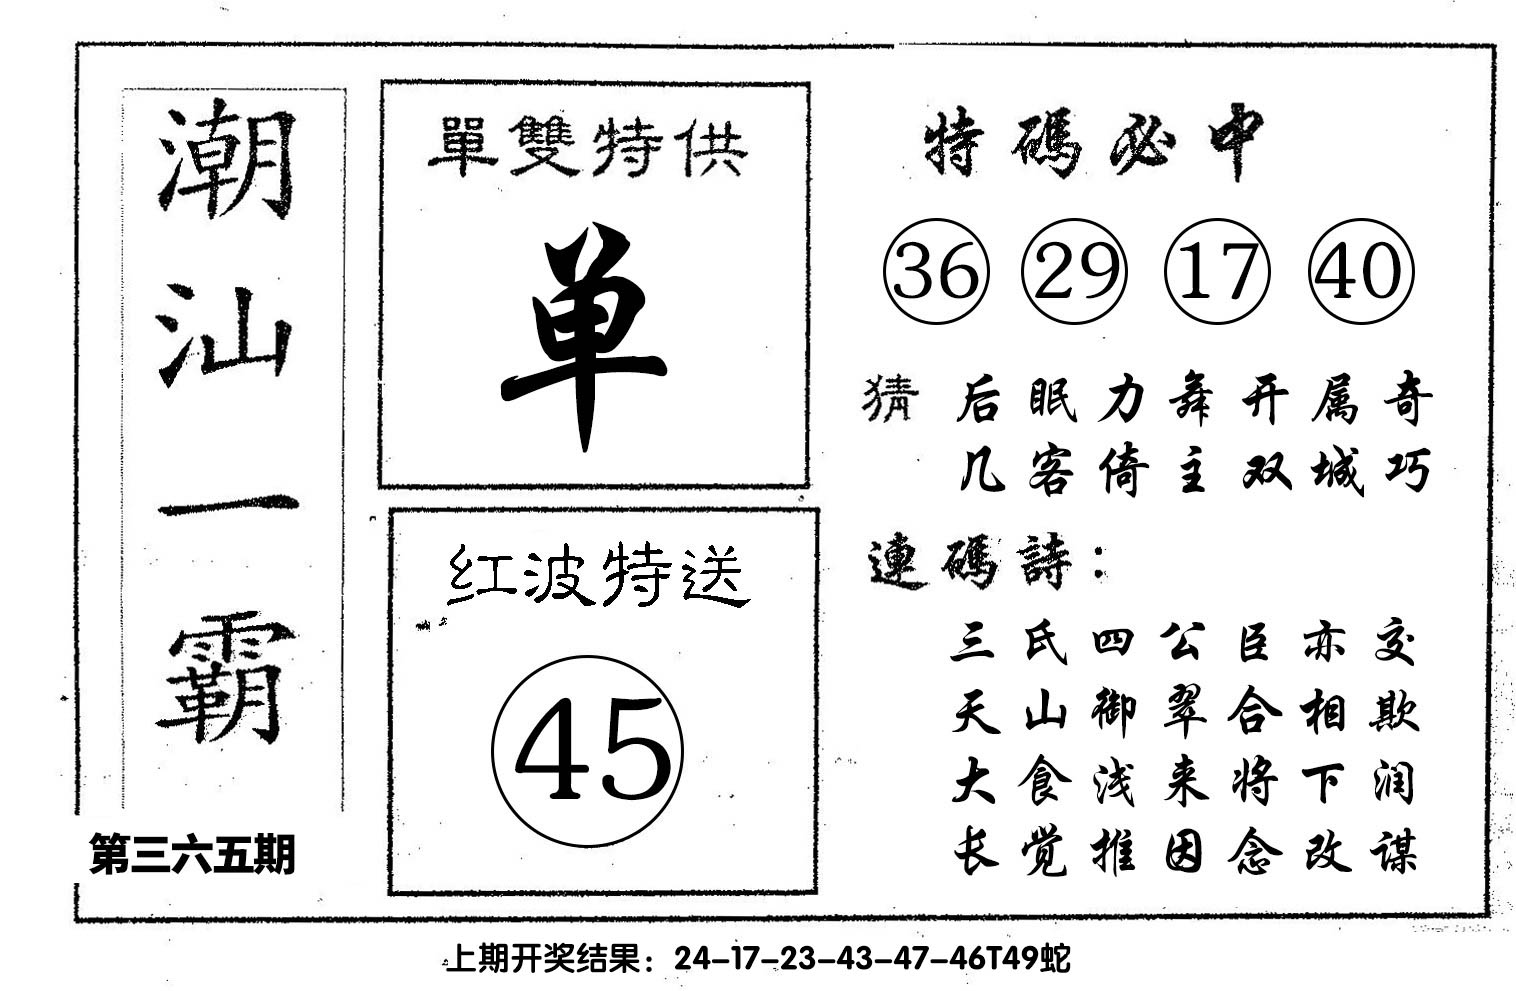 潮汕一霸
第三六五期
單雙特供
单
红波特送
45
特碼必中
36 29 17 40
猜 后眠力舞开属奇
几客倚主双城巧
連碼詩：
三氏四公臣亦交
天山御翠合相欺
大食浅来将下润
长觉推因念改谋
上期开奖结果：24-17-23-43-47-46T49蛇